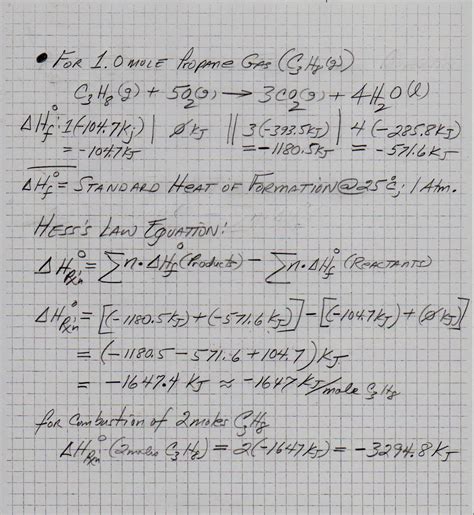 • For 1.0 mole Propane Gas (C₃H₈(g))
C₃H₈(g) + 5O₂(g) → 3CO₂(g) + 4H₂O(l)
ΔH°f: 1(-104.7Kj) | ØKJ || 3(-393.5KJ) | 4(-285.8KJ)
= -104.7Kj = -1180.5KJ = -571.6KJ
ΔH°f = Standard Heat of Formation @ 25°C; 1 Atm.
Hess's Law Equation:
ΔH°Rxn = ∑n·ΔH°f(Products) - ∑n·ΔH°f(Reactants)
ΔH°Rxn = [(-1180.5KJ)+(-571.6KJ)] - [(-104.7KJ)+(ØKJ)]
= (-1180.5 - 571.6 + 104.7) KJ
= -1647.4 KJ ≈ -1647 KJ/mole C₃H₈
for combustion of 2 moles C₃H₈
ΔH°Rxn (2moles C₃H₈) = 2(-1647KJ) = -3294.8KJ